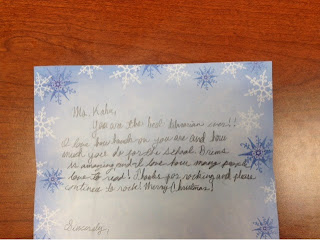 Ms. Kahn,
You are the best librarian ever!!
I love how hands-on you are and how
much you do for the school. Dreams
is amazing and I love how many people
love to read! Thanks for rocking and please
continue to rock! Merry Christmas!
Sincerely,